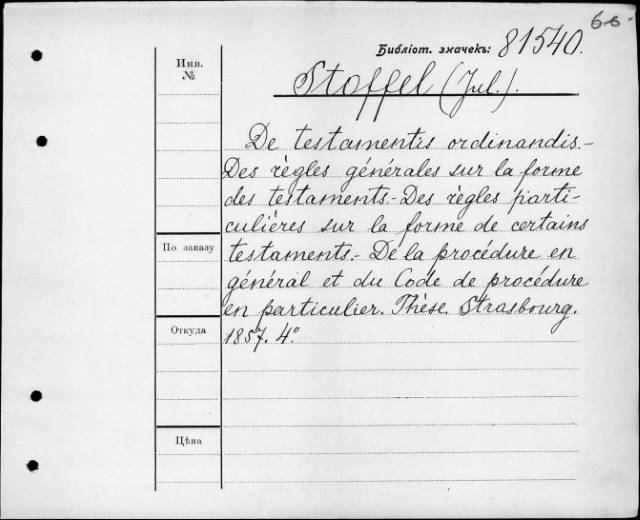 66
Библіот. значекъ: 81540.
Инв.
№
Stoffel (Jul.).
De testamentis ordinandis.-
Des règles générales sur la forme
des testaments.- Des règles parti-
culières sur la forme de certains
По заказу
testaments.- De la procédure en
général et du Code de procédure
en particulier. Thèse. Strasbourg.
Откуда
1857. 4°
Цѣна